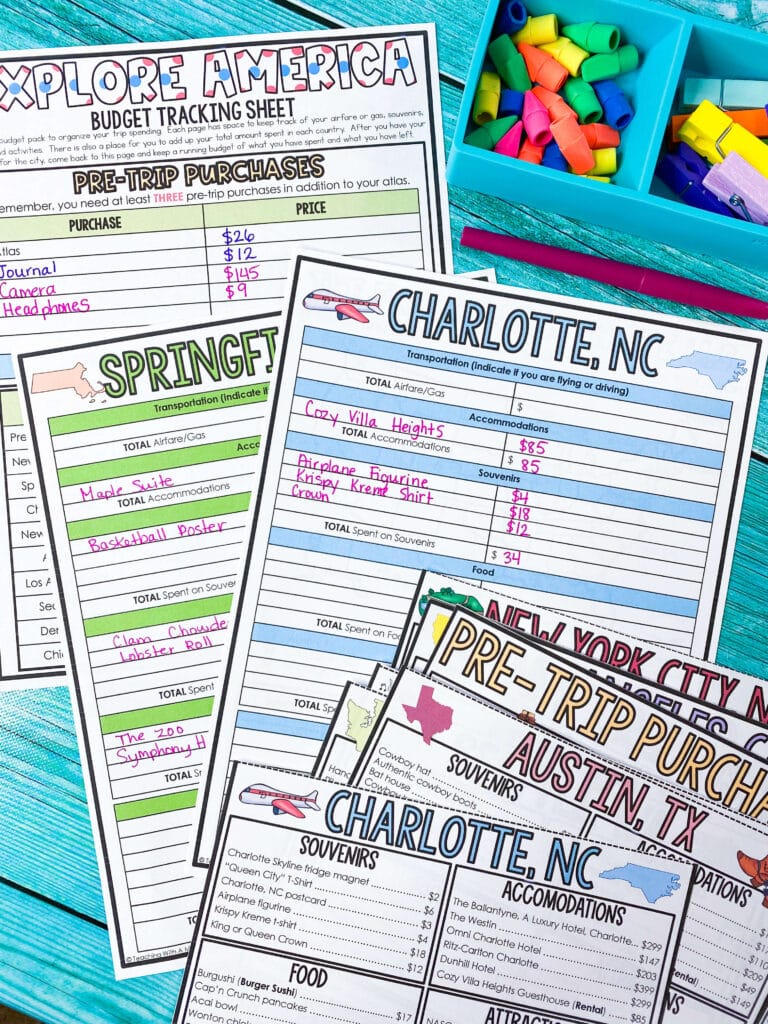 XPLORE AMERICA
BUDGET TRACKING SHEET
budget pack to organize your trip spending. Each page has space to keep track of your airfare or gas, souvenirs,
d activities. There is also a place for you to add up your total amount spent in each country. After you have your
for the city, come back to this page and keep a running budget of what you have spent and what you have left.
PRE-TRIP PURCHASES
emember, you need at least THREE pre-trip purchases in addition to your atlas.
PURCHASE PRICE
Atlas $26
Journal $12
Camera $145
Headphones $9
Pre
New
Sp
Ch
New
A
Los A
Sec
Den
Chi
SPRINGFI
Transportation (indicate if
TOTAL Airfare/Gas
Acco
Maple Suite
TOTAL Accommodations
Basketball Poster
TOTAL Spent on Souve
Clam Chowde
Lobster Roll
TOTAL Spent
The zoo
Symphony H
TOTAL S
TO
CHARLOTTE, NC
Transportation (indicate if you are flying or driving)
TOTAL Airfare/Gas $
Accommodations
Cozy Villa Heights $85
TOTAL Accommodations $ 85
Souvenirs
Airplane Figurine $4
Krispy Kreme Shirt $18
Crown $12
TOTAL Spent on Souvenirs $ 34
Food
TOTAL Spent on Foo
TOTAL Spe
NEW YORK CITY, N
PRE-TRIP PURCHA
AUSTIN, TX
SOUVENIRS
Cowboy hat
Authentic cowboy boots
Bat house
CHARLOTTE, NC
SOUVENIRS
Charlotte Skyline fridge magnet $2
"Queen City" T-Shirt $6
Charlotte, NC postcard $3
Airplane figurine $4
Krispy Kreme t-shirt $18
King or Queen Crown $12
FOOD
Burgushi (Burger Sushi) $17
Cap'n Crunch pancakes
Acai bowl
Wonton chi
ACCOMODATIONS
The Ballantyne, A Luxury Hotel, Charlotte... $299
The Westin $147
Omni Charlotte Hotel $203
Ritz-Carlton Charlotte $399
Dunhill Hotel $299
Cozy Villa Heights Guesthouse (Rental) $85
ATTRACTI